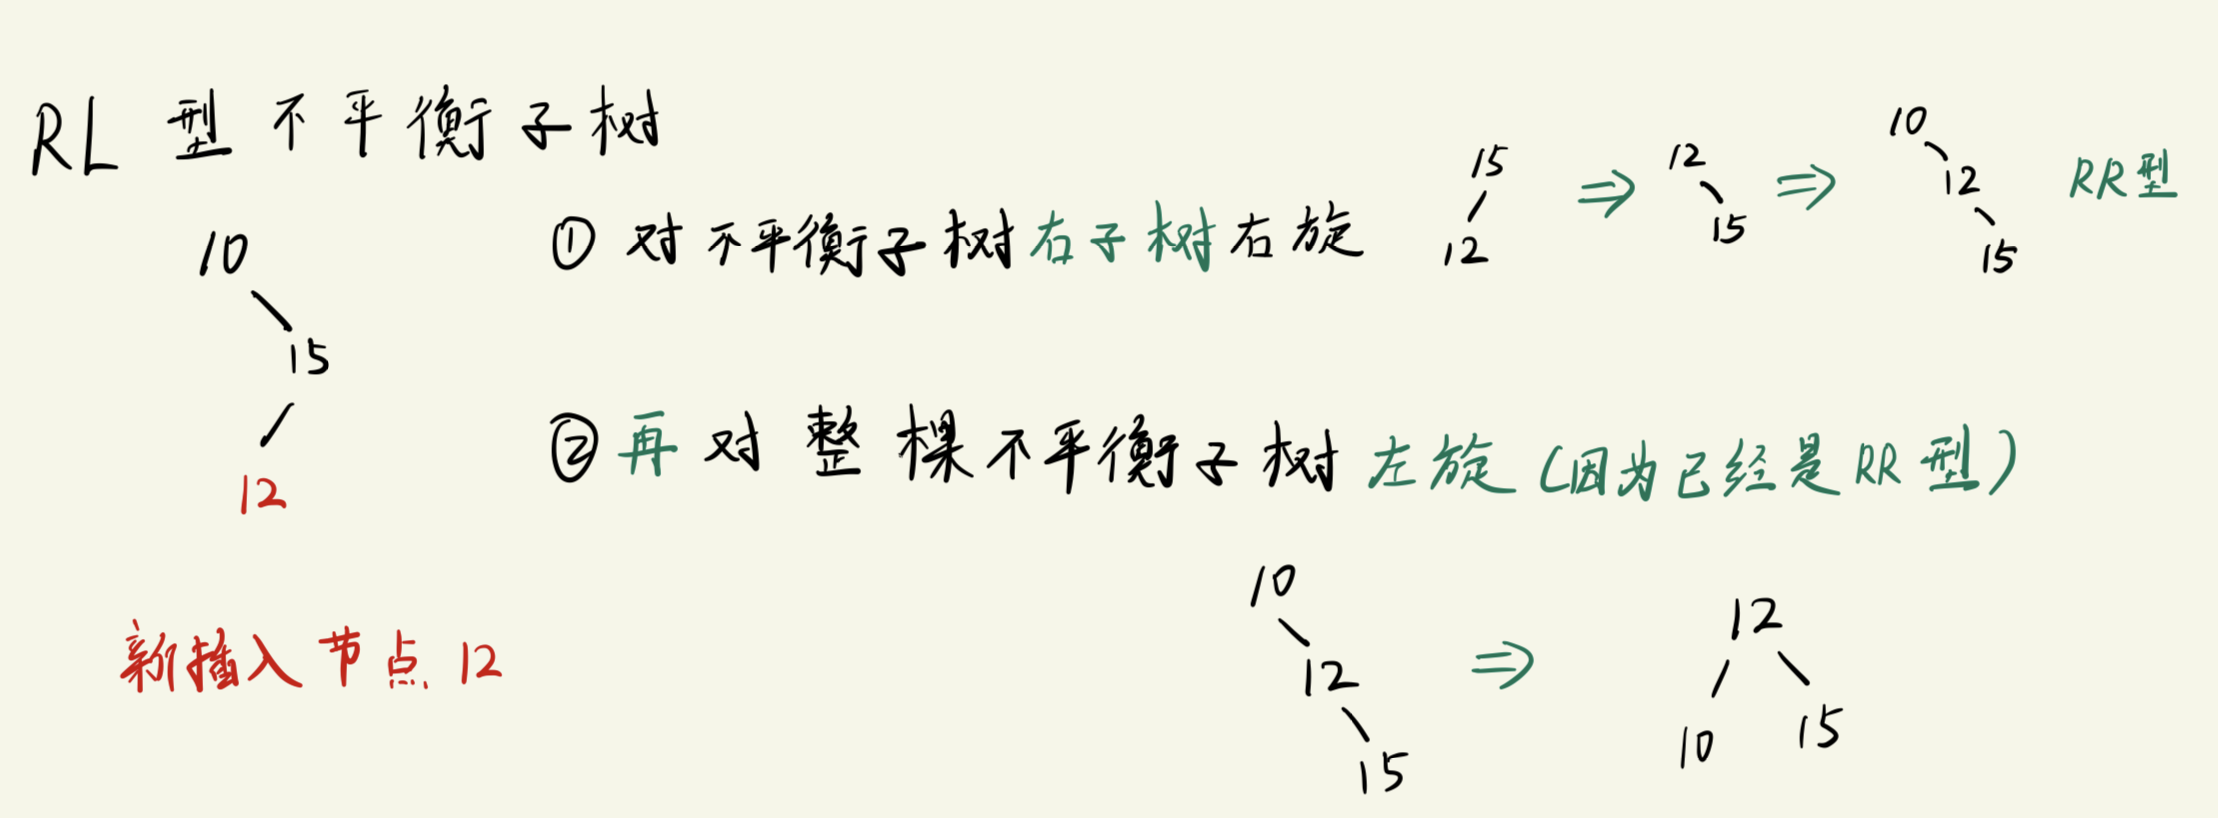 RL 型不平衡子树
10
15
12
新插入节点 12
① 对不平衡子树右子树右旋
15
12
⇒
12
15
⇒
10
12
15
RR型
② 再对整棵不平衡子树左旋（因为已经是RR型）
10
12
15
⇒
12
10 15